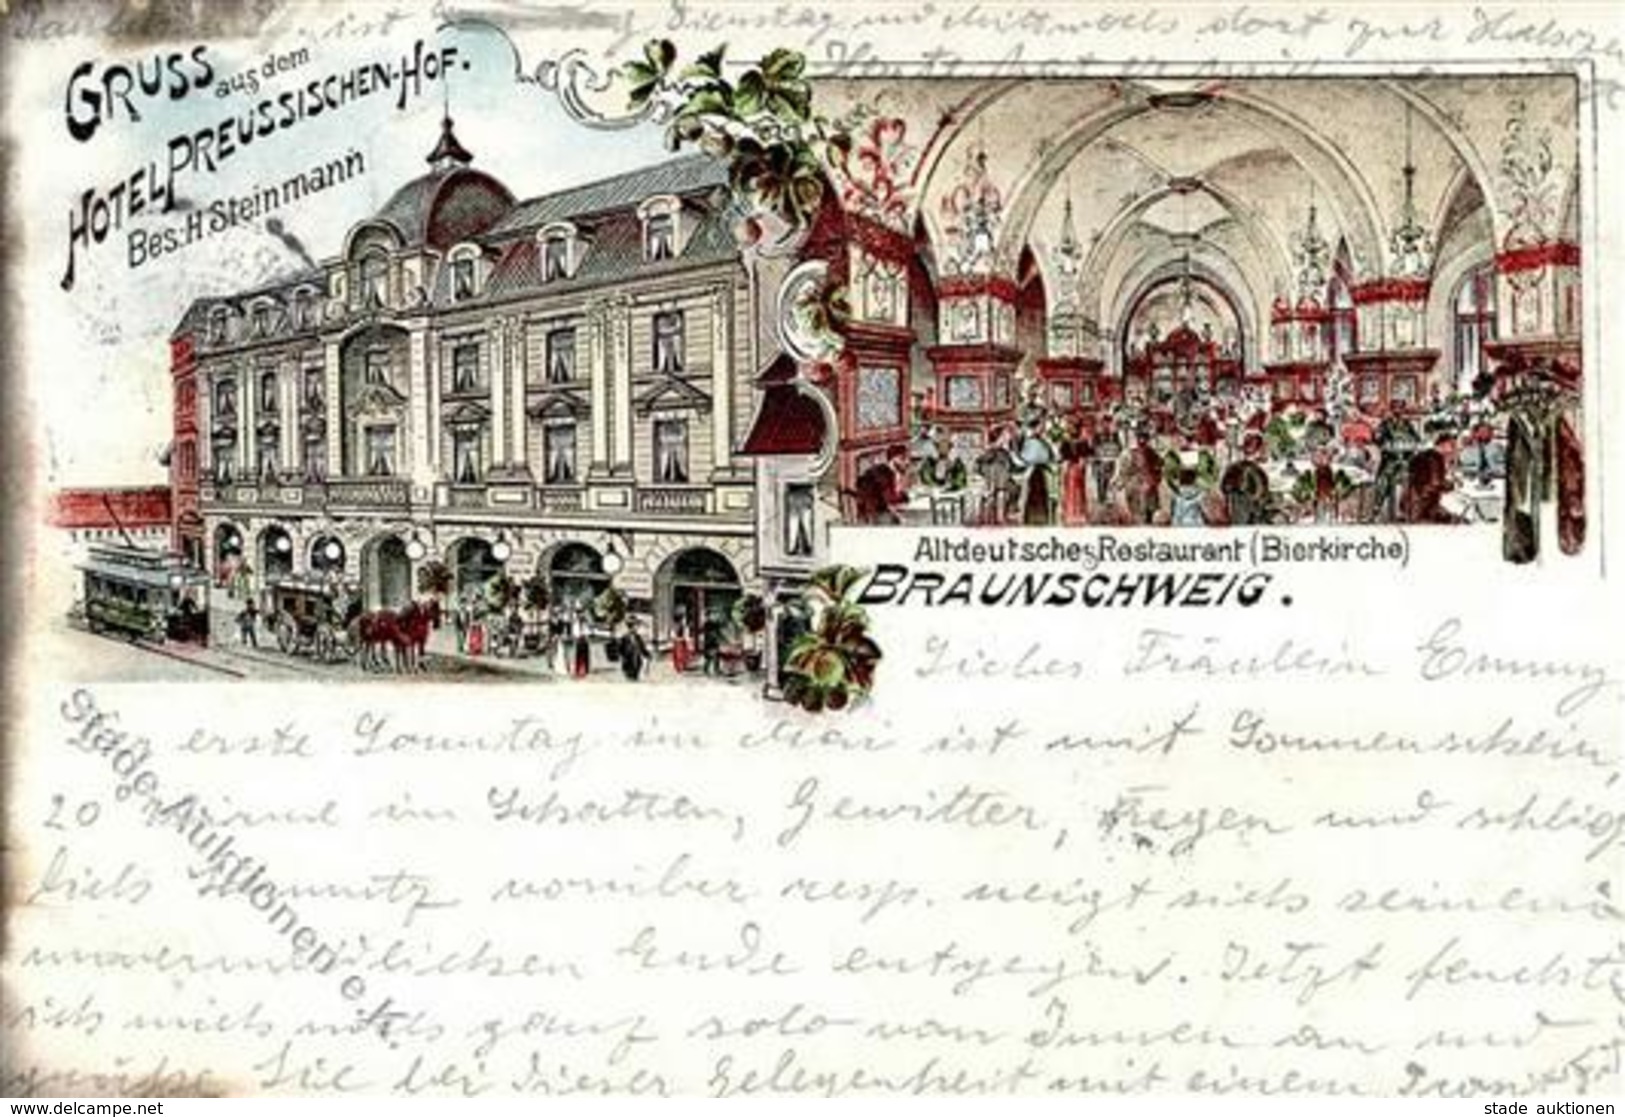 ist Dienstag und Mittwoch dort zur
Heute hat
GRUSS aus dem
HOTEL PREUSSISCHEN-HOF.
Bes. H. Steinmann
Altdeutsches Restaurant (Bierkirche)
BRAUNSCHWEIG.
Liebes Fräulein Emmy
erste Sonntag im Mai ist mit Sonnenschein,
20 im Schatten, Gewitter, Regen und schließ
lich vorüber resp. neigt sich seinem
unvermeidlichen Ende entgegen. Jetzt feuchte
ich mich noch ganz solo von Innen an und
grüße Sie bei dieser Gelegenheit mit einem Prosit
Stade Auktionen e.K.
www.delcampe.net
stade auktionen